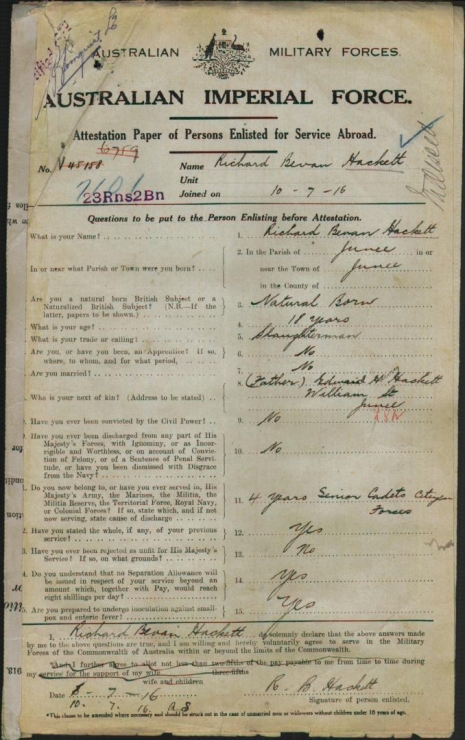 AUSTRALIAN MILITARY FORCES.
AUSTRALIAN IMPERIAL FORCE.
Attestation Paper of Persons Enlisted for Service Abroad.
6759
No. V 45158 Name Richard Bevan Hackett
Unit
23Rns2Bn Joined on 10-7-16
Questions to be put to the Person Enlisting before Attestation.
What is your Name? 1. Richard Bevan Hackett
2. In the Parish of Junee in or
In or near what Parish or Town were you born? near the Town of Junee
in the County of
Are you a natural born British Subject or a
Naturalized British Subject? (N.B.—If the
latter, papers to be shown.) 3. Natural Born
What is your age? 4. 18 years
What is your trade or calling? 5. Slaughterman
Are you, or have you been, an Apprentice? If so,
where, to whom, and for what period, 6. No
Are you married? 7. No
Who is your next of kin? (Address to be stated) 8. (Father) Edward H Hackett
William St
Junee
Have you ever been convicted by the Civil Power? 9. No
Have you ever been discharged from any part of His
Majesty's Forces, with Ignominy, or as Incor-
rigible and Worthless, or on account of Convic-
tion of Felony, or of a Sentence of Penal Servi-
tude, or have you been dismissed with Disgrace
from the Navy? 10. No
Do you now belong to, or have you ever served in, His
Majesty's Army, the Marines, the Militia, the
Militia Reserve, the Territorial Force, Royal Navy,
or Colonial Forces? If so, state which, and if not
now serving, state cause of discharge 11. 4 Years Senior Cadets Citizen
Forces
2. Have you stated the whole, if any, of your previous
service? 12. Yes
3. Have you ever been rejected as unfit for His Majesty's
Service? If so, on what grounds? 13. No
4. Do you understand that no Separation Allowance will
be issued in respect of your service beyond an
amount which, together with Pay, would reach
eight shillings per day? 14. Yes
5. Are you prepared to undergo inoculation against small-
pox and enteric fever? 15. Yes
I, Richard Bevan Hackett, solemnly declare that the above answers made
by me to the above questions are true, and I am willing and hereby voluntarily agree to serve in the Military
Forces of the Commonwealth of Australia within or beyond the limits of the Commonwealth.
And I further agree to allot not less than two-fifths of the pay payable to me from time to time during
my service for the support of my wife three-fifths
wife and children
Date 8-7-16 R. B Hackett
10. 7. 16. Signature of person enlisted.
*This clause to be amended where necessary and should be struck out in the case of unmarried men or widowers without children under 16 years of age.